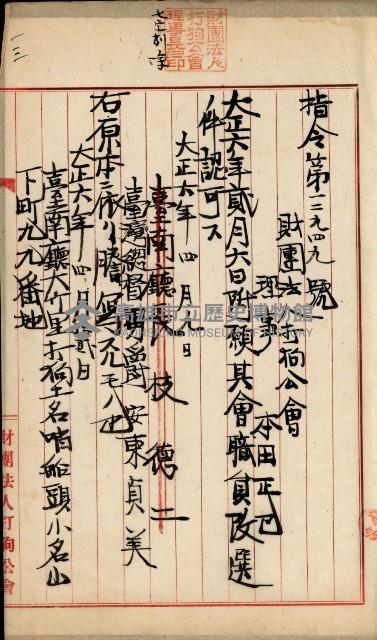 財團法人
打狗公會
理事長之印
七字削除
一三
指令第一三九四九號
財團法人打狗公會
理事 本田正已
大正六年貳月六日附願其會職員改選
件認可ス
大正六年四月九日
臺南廳長枝德二
臺灣總督男爵安東貞美
右原本ニ依リ謄寫
大正六年四月貳日
臺南廳大竹里打狗土名哨船頭小名山
下町九九番地
財團法人打狗公會
高雄市立歷史博物館